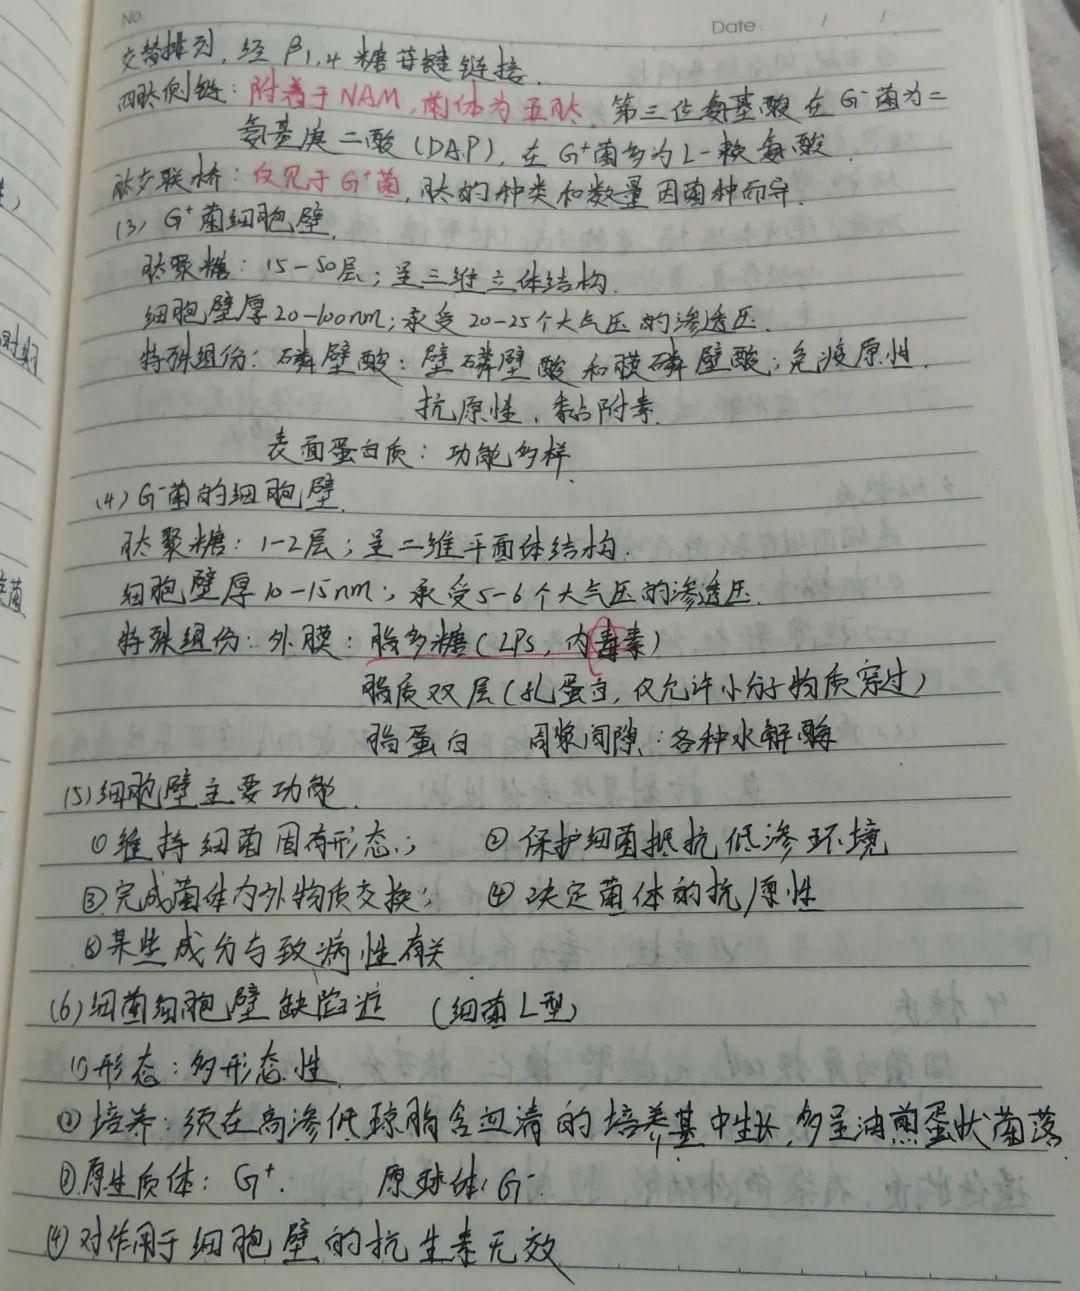 No.
Date: / /
交替排列,经β1,4糖苷键链接.
四肽侧链:附着于NAM,菌体为五肽.第三位氨基酸在G⁻菌为二
氨基庚二酸(DAP),在G⁺菌多为L-赖氨酸.
肽交联桥:仅见于G⁺菌,肽的种类和数量因菌种而异.
(3) G⁺菌细胞壁.
肽聚糖:15-50层;呈三维立体结构.
细胞壁厚20-100nm;承受20-25个大气压的渗透压.
特殊组份:磷壁酸:壁磷壁酸和膜磷壁酸;免疫原性.
抗原性、黏附素.
表面蛋白质:功能多样.
(4) G⁻菌的细胞壁.
肽聚糖:1-2层;呈二维平面体结构.
细胞壁厚10-15nm;承受5-6个大气压的渗透压.
特殊组份:外膜:脂多糖(LPS,内毒素)
脂质双层(孔蛋白,仅允许小分子物质穿过)
脂蛋白 周浆间隙:各种水解酶
(5)细胞壁主要功能.
①维持细菌固有形态; ②保护细菌抵抗低渗环境
③完成菌体内外物质交换; ④决定菌体的抗原性
⑤某些成分与致病性有关
(6)细菌细胞壁缺陷 (细菌L型)
①形态:多形态性.
②培养:须在高渗低琼脂含血清的培养基中生长,多呈油煎蛋状菌落.
③原生质体:G⁺. 原球体:G⁻.
④对作用于细胞壁的抗生素无效